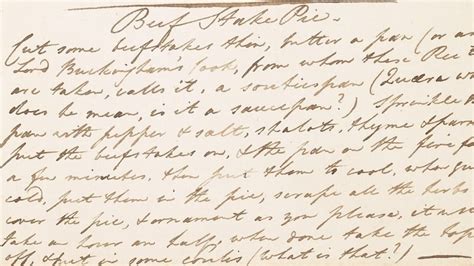 Beef Stake Pie
Cut some beefstakes thin, butter a pan (or as
Lord Buckingham's Cook, from whom these Rec
are taken, calls it, a soutiespan (Quæra w
does he mean, is it a saucepan?) Sprinkle
pan with pepper & salt, shalots, thyme & pars
put the beefstakes on, & the pan on the fire fo
a few minutes, then put them to cool, when qui
cold, put them in the pie, scrape all the herbs
cover the pie, & ornament as you please, it will
take an hour an half, when done take the top
off, & put in some coulis (what is that?)